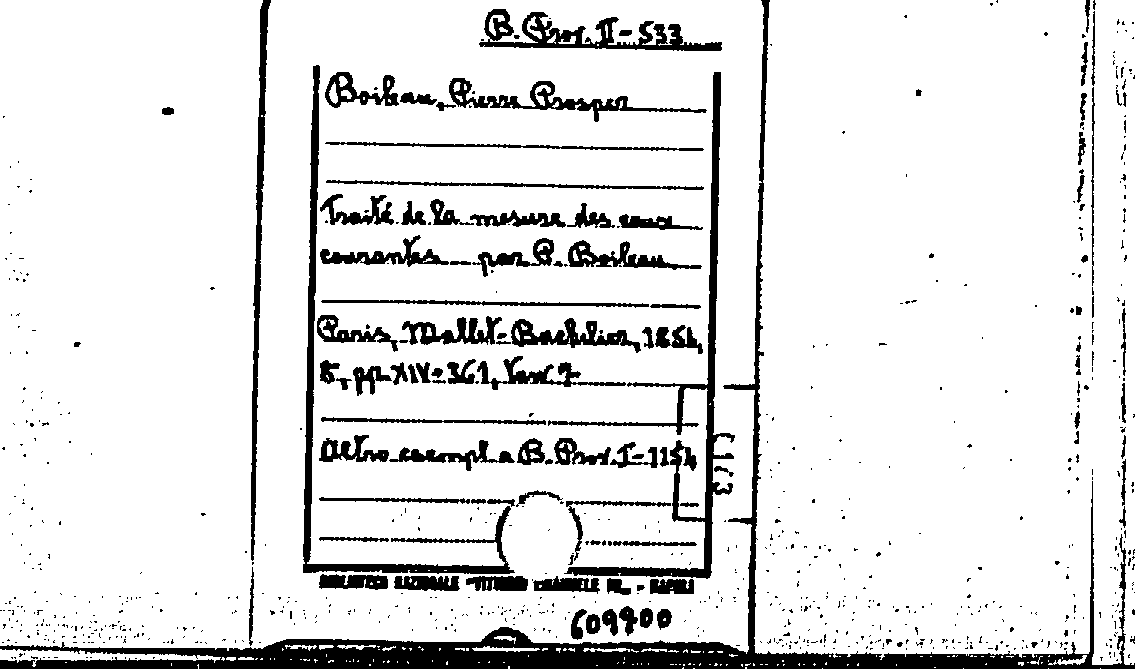 B. Prov. II-533
Boileau, Pierre Prosper
Traité de la mesure des eaux
courantes par P. Boileau
Paris, Mallet-Bachelier, 1854,
8, pp. XIV-361, tav. 7
Altro esempl a B. Prov. I-1154
BIBLIOTECA NAZIONALE "VITTORIO EMANUELE III" - NAPOLI